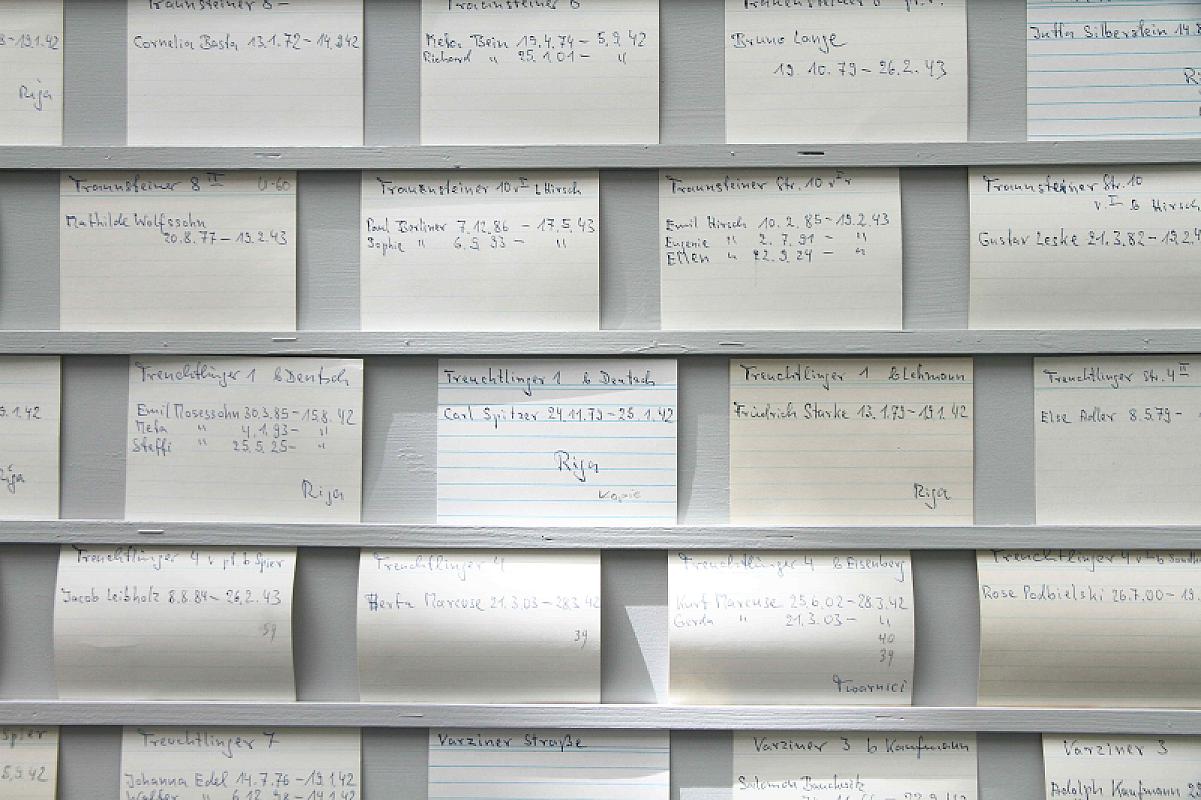 Traunsteiner 8
Traunsteiner 8
Traunsteiner 8
-19.1.42
Riga
Cornelia Basta 13.1.72 - 14.9.42
Meta Bein 19.4.74 - 5.9.42
Richard " 25.1.01 - "
Bruno Lange
19.10.79 - 26.2.43
Jutta Silberstein 14.8
Ri
Traunsteiner 8 II U-60
Mathilde Wolfssohn
20.8.77 - 19.2.43
Traunsteiner 10 v I b Hirsch
Paul Berliner 7.12.86 - 17.5.43
Sophie " 6.5.93 - "
Traunsteiner Str. 10 v I r
Emil Hirsch 10.2.85 - 19.2.43
Eugenie " 2.7.91 - "
Ellen " 22.9.24 - "
Traunsteiner Str. 10
v. I b Hirsch
Gustav Leske 21.3.82 - 19.2.4
5.1.42
Riga
Treuchtlinger 1 b Deutsch
Emil Mosessohn 30.3.85 - 15.8.42
Meta " 4.1.93 - "
Steffi " 25.5.25 - "
Riga
Treuchtlinger 1 b Deutsch
Carl Spitzer 24.11.79 - 25.1.42
Riga
Kopie
Treuchtlinger 1 b Lehmann
Friedrich Starke 13.1.79 - 19.1.42
Riga
Treuchtlinger Str. 4 II
Else Adler 8.5.79 -
Treuchtlinger 4 v pt b Spier
Jacob Leibholz 8.8.84 - 26.2.43
59
Treuchtlinger 4
Herta Marcuse 21.3.03 - 28.3.42
39
Treuchtlinger 4 b Eisenberg
Kurt Marcuse 25.6.02 - 28.3.42
Gerda " 21.3.03 - "
40
39
Trawnici
Treuchtlinger 4 v
Rose Podbielski 26.7.00 - 19.
Spier
5.9.42
Treuchtlinger 7
Johanna Edel 14.7.76 - 19.1.42
Walter " 6.12.98 - 14.1.42
Varziner Straße
Varziner 3 b Kaufmann
Salomon
Varziner 3
Adolph Kaufmann